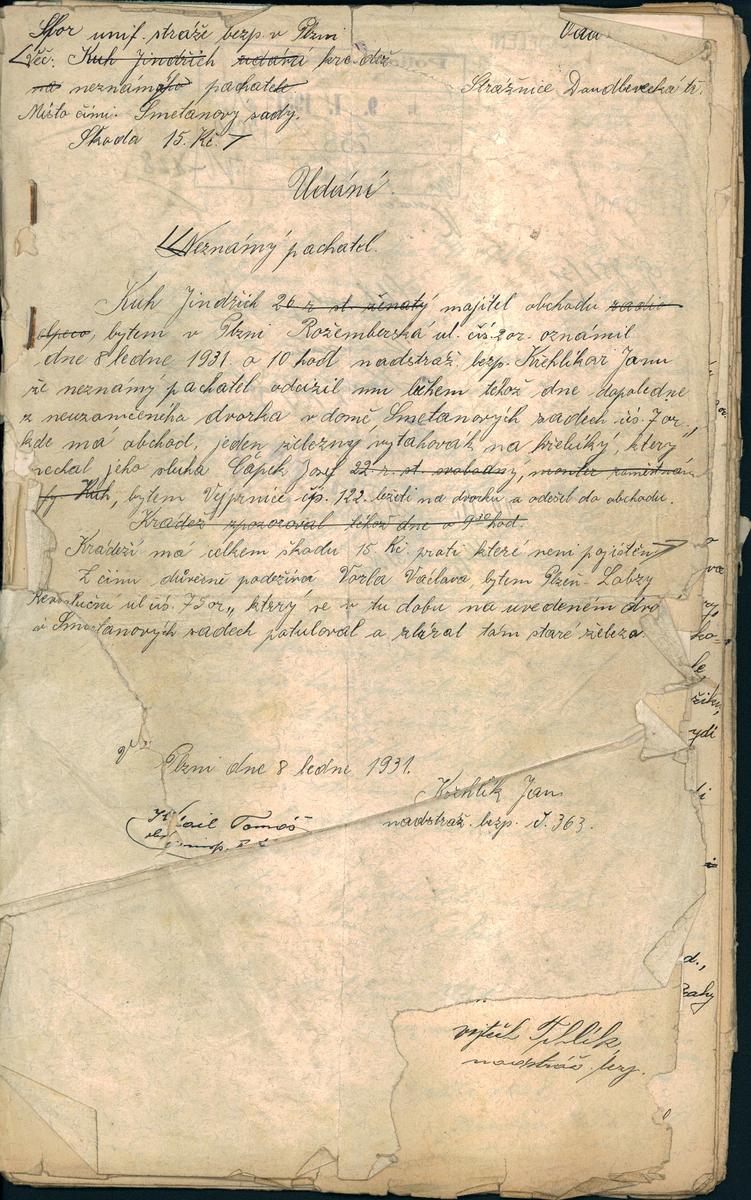 Sbor unif. stráže bezp. v Plzni
Věc: Kuh Jindřich udává krádež
na neznámého pachatele
Strážnice Doudlevecká tř.
Místo činu: Smetanovy sady.
Škoda 15. Kč.
Udání.
Neznámý pachatel.
Kuh Jindřich 26 r. st. ženatý majitel obchodu radio
bytem v Plzni Rožemberská ul. čís. 2 or. oznámil
dne 8 ledna 1931 o 10 hod nadstraž. bezp. Křehlíkar Janu
že neznámý pachatel odcizil mu během téhož dne dopoledne
z neuzamčeného dvorka v domě Smetanových sadech čís. 7 or.,
kde má obchod, jeden železný vytahovák na hřebíky, který
nechal jeho sluha Čapek Josef 22 r. st. svobodný, montér zaměstnán
fy Kuh, bytem Vejprnice čp. 122. ležeti na dvorku a odešel do obchodu.
Krádež zpozoroval téhož dne o 9 hod.
Krádeží má celkem škodu 15 Kč proti které není pojištěn
Z činu důvěrně podezívá Vozla Václava, bytem Plzeň - Lobzy
Revoluční ul čís. 75 or., který se v tu dobu na uvedeném dvo
v Smetanových sadech potuloval a sbíral tam staré železo.
V Plzni dne 8 ledna 1931.
Křehlík Jan
nadstraž. bezp. č. 363.
Tomáš
nadstráž. bezp.